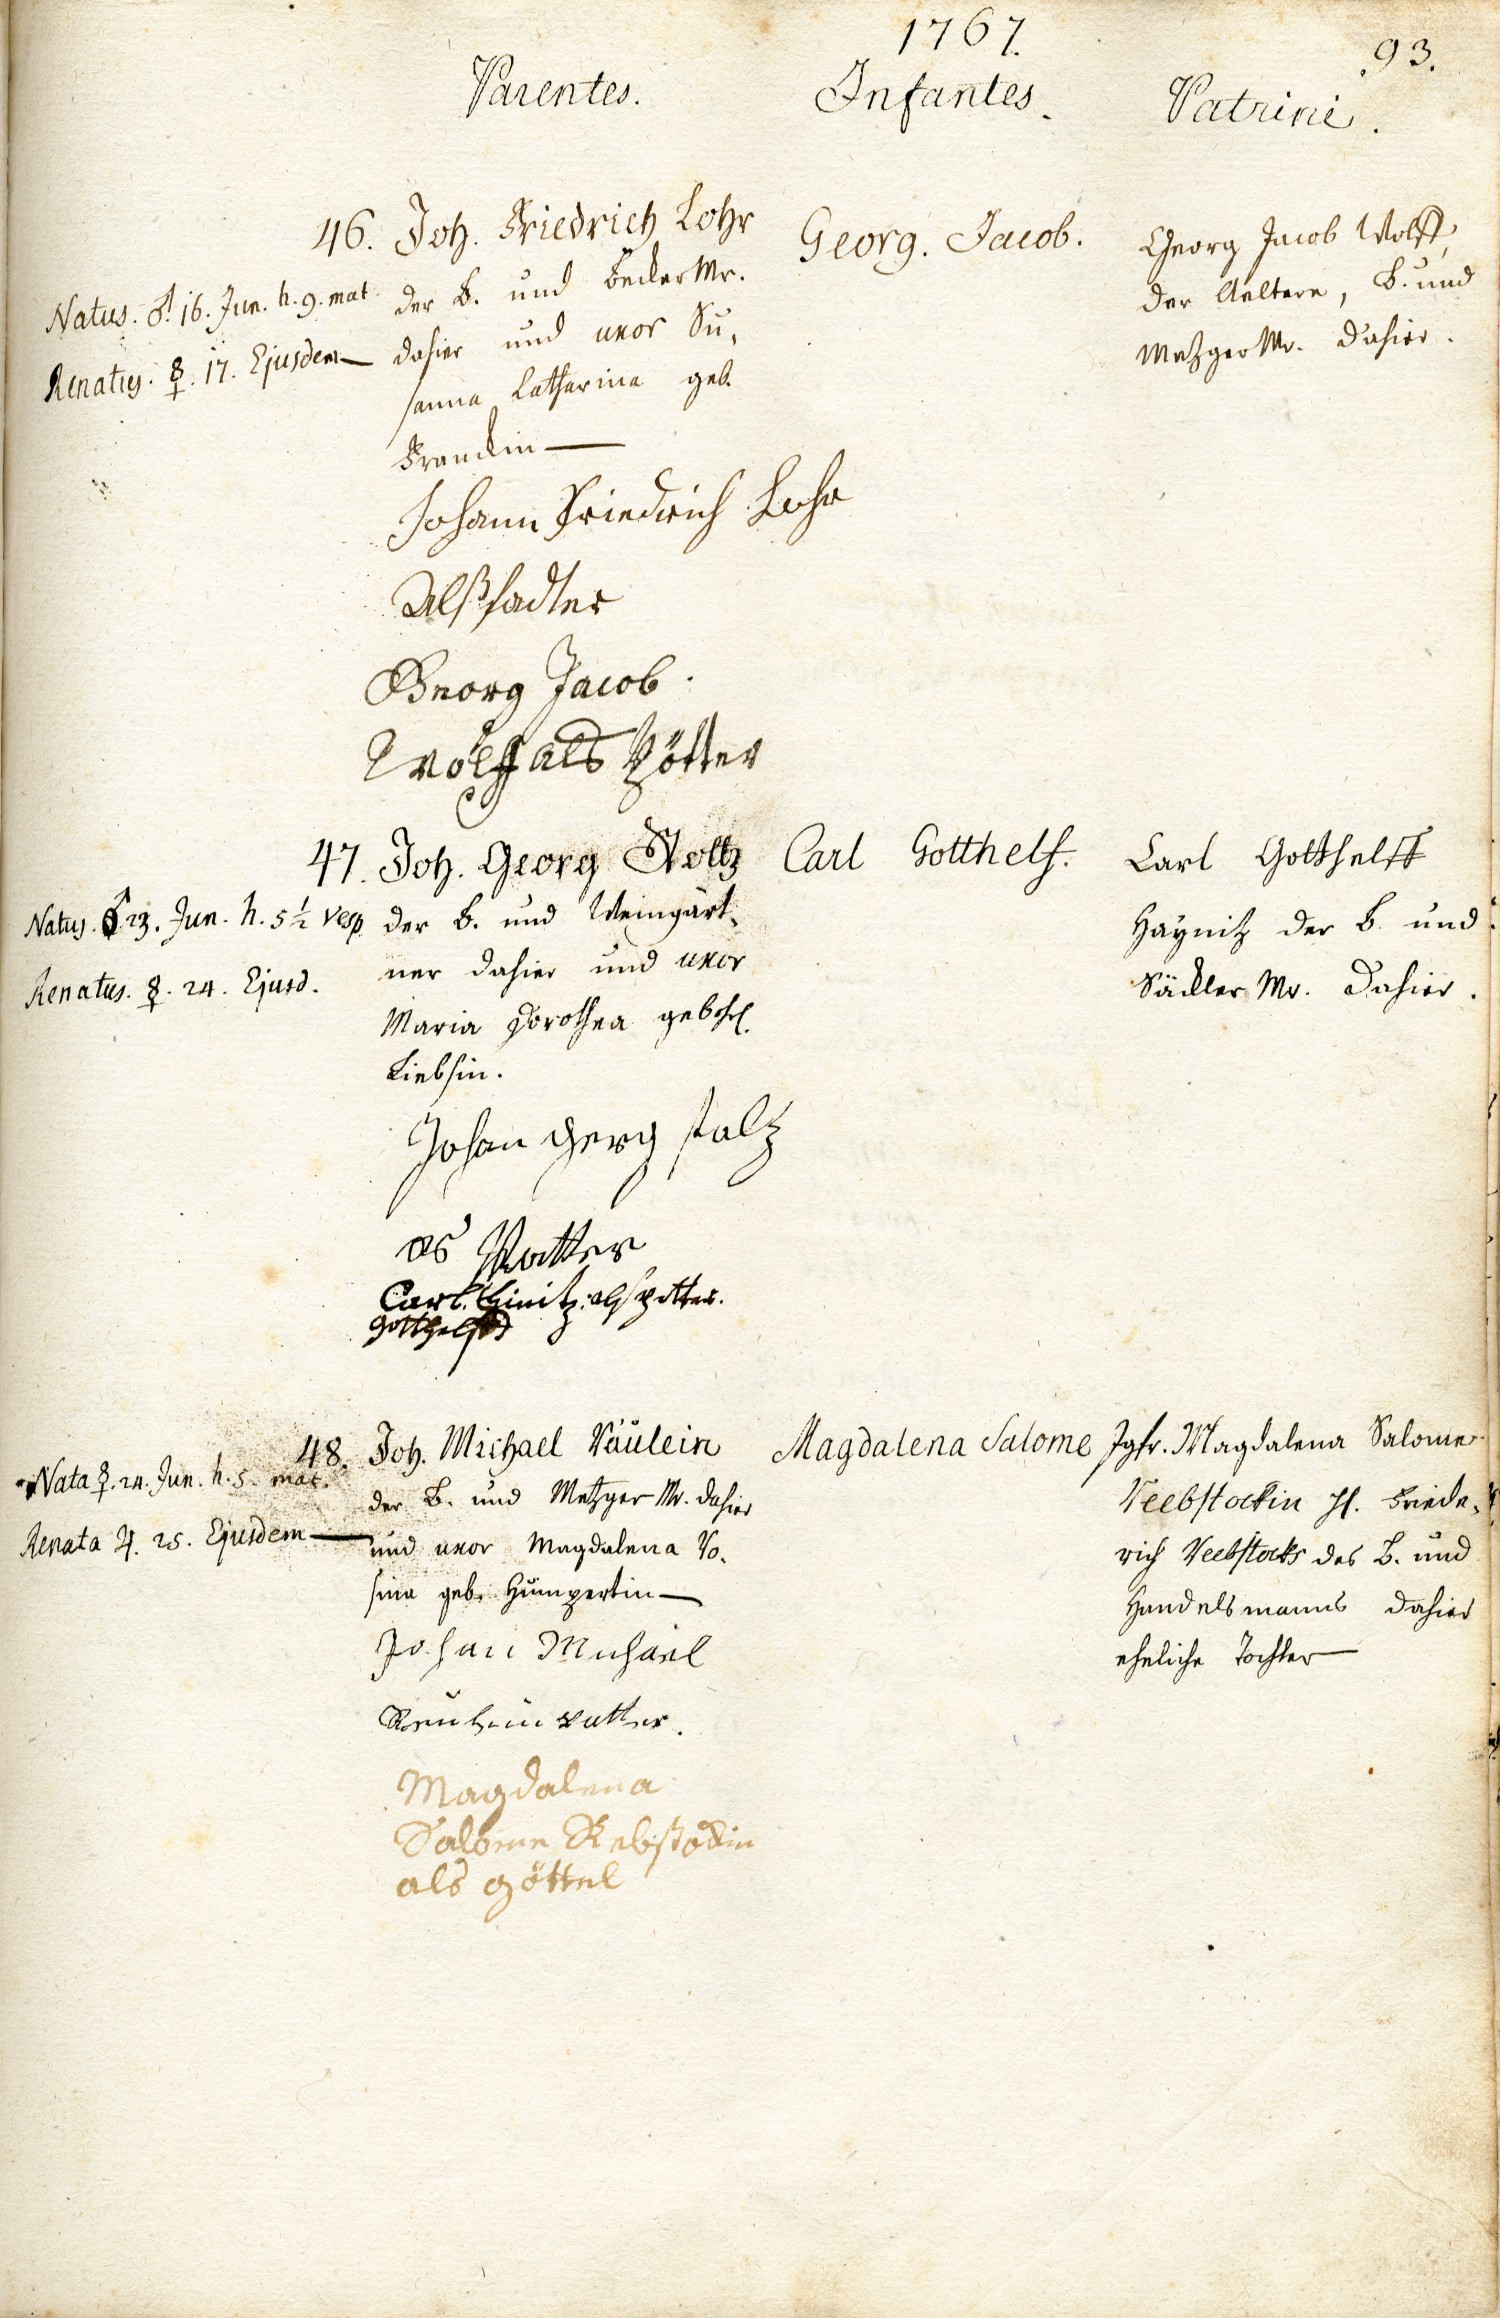 1767.
93.
Parentes.
Infantes.
Patrini.
46. Joh. Friedrich Lohr
der B. und Becker Mr.
dahier und uxor Su,
sanna Catharina geb.
Franckin —
Natus. ♂. 16. Jun. h. 9. mat.
Renatus. ☿. 17. Ejusdem —
Georg. Jacob.
Georg Jacob Wolff,
der Aeltere, B. und
Metzger Mr. dahier.
Johann Friedrich Lohr
Georg Jacob
Wolff als Pötter
47. Joh. Georg Stoltz
der B. und Weingärt,
ner dahier und uxor
Maria Dorothea gebohrl.
Liebsin.
Natus. ♂. 23. Jun. h. 5 1/2 vesp.
Renatus. ☿. 24. Ejusd.
Carl Gotthelf.
Carl Gotthelff
Haynitz der B. und
Säckler Mr. dahier.
Johan Gerg stolz
als Vatter
Carl. Hinitz. als pötter.
Gotthelf
48. Joh. Michael Räulein
der B. und Metzger Mr. dahier
und uxor Magdalena Ro,
sina geb. Humpertin —
Nata ☿. 24. Jun. h. 5. mat.
Renata ♃. 25. Ejusdem —
Magdalena Salome
Jgfr. Magdalena Salome
Reebstockin H. Friede,
rich Reebstocks des B. und
Handelsmanns dahier
eheliche Tochter —
Johan Michael
Reulein vatter.
Magdalena
Salome Rebstockin
als göttel